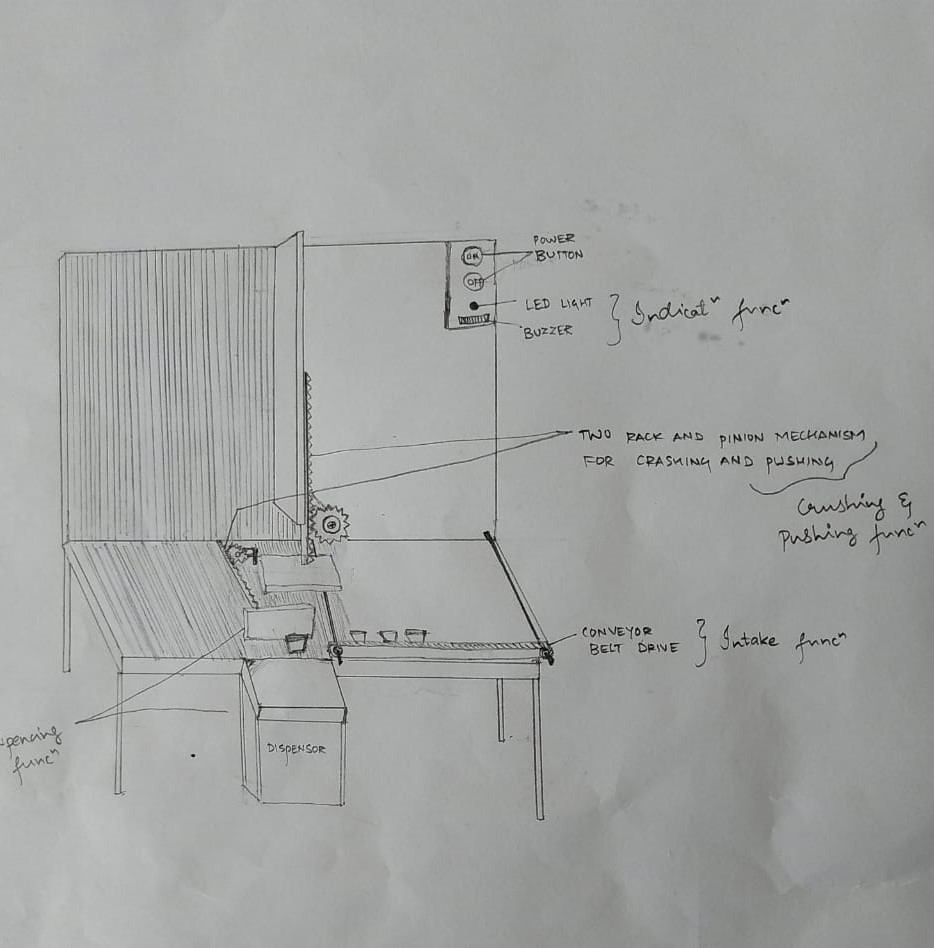 POWER
BUTTON
ON
OFF
LED LIGHT } Indicatⁿ funcⁿ
BUZZER
TWO RACK AND PINION MECHANISM
FOR CRASHING AND PUSHING
Crushing &
Pushing funcⁿ
CONVEYOR
BELT DRIVE } Intake funcⁿ
spencing
funcⁿ
DISPENSOR